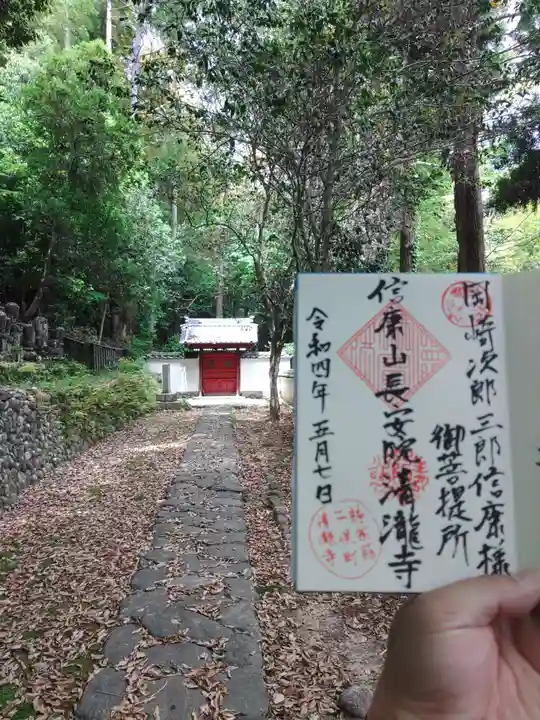 岡崎次郎三郎信康様
御菩提所
信康山長安院清瀧寺
令和四年五月七日
二俣町
清瀧寺